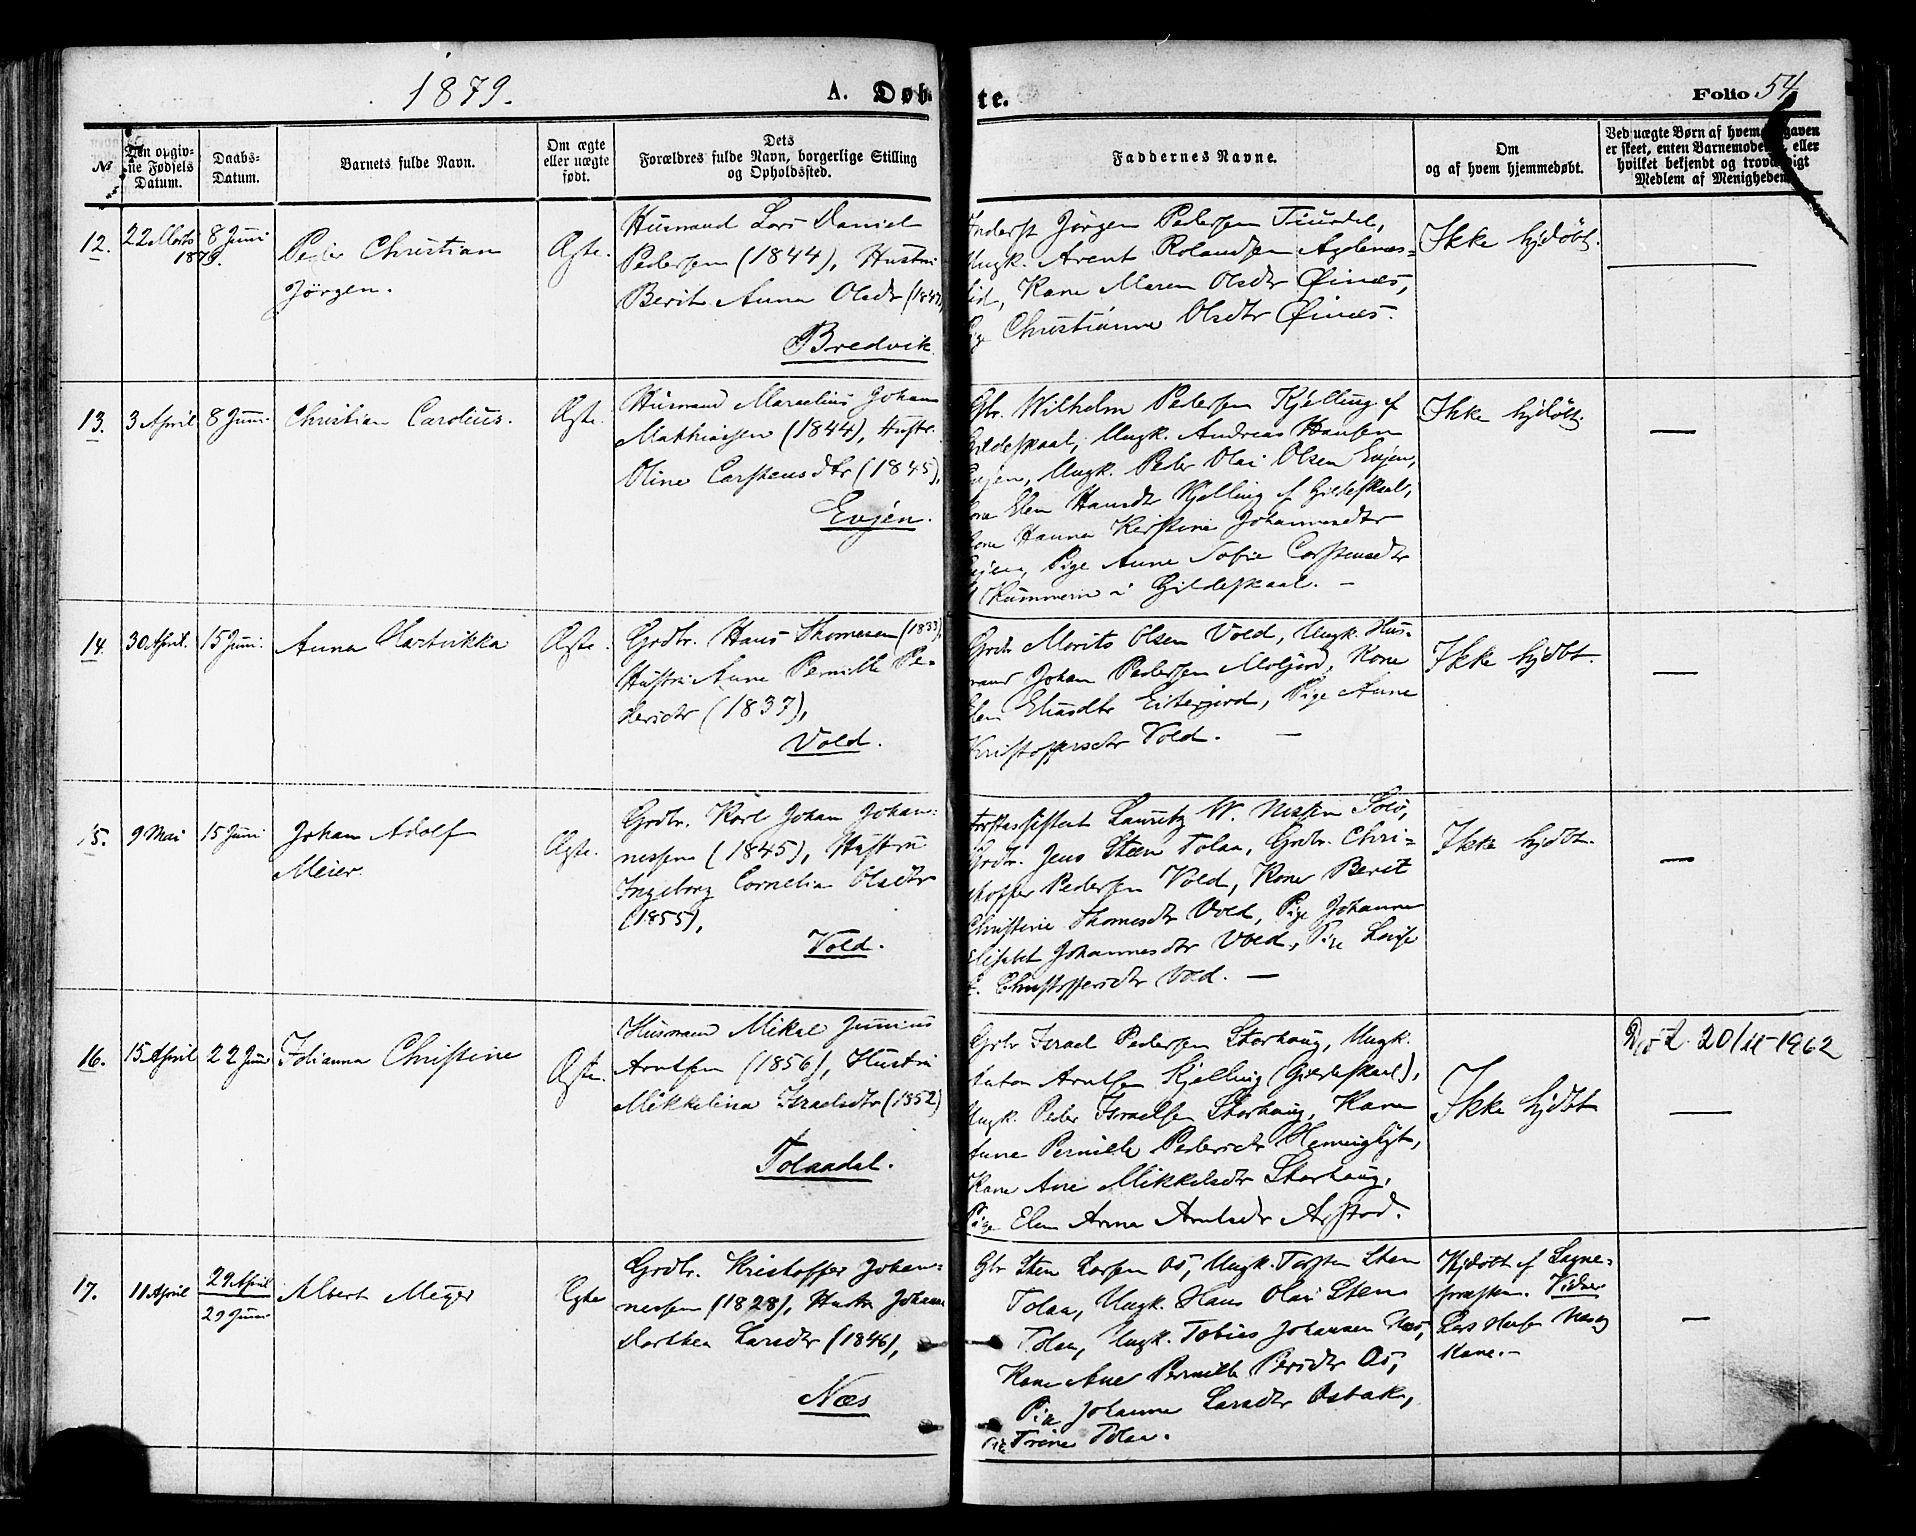 1879.
A. Døbte.
Folio 54
№
Den opgivne Fødsels Datum.
Daabs-Datum.
Barnets fulde Navn.
Om ægte eller uægte født.
Dets Forældres fulde Navn, borgerlige Stilling og Opholdssted.
Faddernes Navne.
Om og af hvem hjemmedøbt.
Ved uægte Børn af hvem Opgaven er skeet, enten Barnemoderen, eller hvilket bekjendt og troværdigt Medlem af Menigheden.
12.
22 Marts 1879.
8 Juni
Peder Christian
Jörgen.
Ægte.
Husmand Lars Daniel
Pedersen (1844), Hustru
Berit Anna Olsdtr (1847)
Bredvik
Inderst Jörgen Pedersen
Ungk. Arent Rolandsen Agdenæs-
eid, Kone Maren Olsdtr Øinæs,
Pige Christianna Olsdtr Øinæs.
Ikke hjdøbt.
13.
3 April
8 Juni
Christian Carolius.
Ægte.
Husmand Marselius Johan
Mathiassen (1844), Hustr.
Oline Carstensdtr (1845),
Evjen.
Gbr. Wilhelm Pedersen Kjelling af
Gildeskaal, Ungk. Andreas Hansen
Evjen, Ungk. Peder Olai Olsen Evjen,
Kone Elen Hansdtr Kjelling af Gildeskaal,
Kone Hanna Kirstine Johannesdtr
Evjen, Pige Anne Sofie Carstensdtr
i Gildeskaal. –
Ikke hjdøbt.
—
14.
30 April.
15 Juni.
Anna Hartvikka
Ægte.
Grdbr. Hans Thomesen (1833),
Hustru Anne Pernille Pe-
dersdtr (1837),
Vold.
Grdbr Morits Olsen Vold, Ungk. Hus-
mand Johan Pedersen Moljord, Kone
Elen Eliasdtr Eiterjord, Pige Anne
Kristoffersdtr Vold. –
Ikke hjdbt.
—
15.
9 Mai
15 Juni
Johan Adolf
Meier.
Ægte.
Grdbr. Karl Johan Johan-
nessen (1845), Hustru
Ingeborg Cornelia Olsdtr
(1855),
Vold.
Forstassistent Lauritz W. Nissen
Grdbr. Jens Steen Tolaa, Grdbr. Chri-
stoffer Pedersen Vold, Kone Berit
Christine Thomesdtr Vold, Pige Johanna
Elisabet Johannesdtr Vold, Pige Lovise
Christoffersdtr Vold. –
Ikke hjdbt.
—
16.
15 April
22 Juni
Johanna Christine
Ægte.
Husmand Mikal Junius
Arntsen (1856), Hustru
Mikkelina Israelsdtr (1852)
Tolaadal.
Grbr Israel Pedersen Storhaug, Ungk.
Anton Arntsen Kjelling (Gildeskaal),
Ungk. Peder Israelsen Storhaug, Kone
Anne Pernille Pedersdtr
Kone Ane Mikkelsdtr Storhaug,
Pige Elen Anna Arntsdtr Arstad.
Ikke hjdbt
Död 20/11-1962
—
17.
11 April
29 April
29 Juni
Albert Meyer
Ægte
Grdbr. Kristoffer Johan-
nessen (1828), Hustr Johanna
Dorthea Larsdtr (1846),
Næs
Gbr Sten Larsen Os, Ungk. Torsten Sten
Tolaa, Ungk. Hans Olai Stens
Tolaa, Ungk. Tobias Johansen Næs,
Kone Ane Pernille Persdtr Os,
Pige Johanna Larsdtr Osbak,
Pige Trine Tolaa.
Hjdøbt af Sogne-
præsten. Vidner
Lars Næs og
Kone. –
—